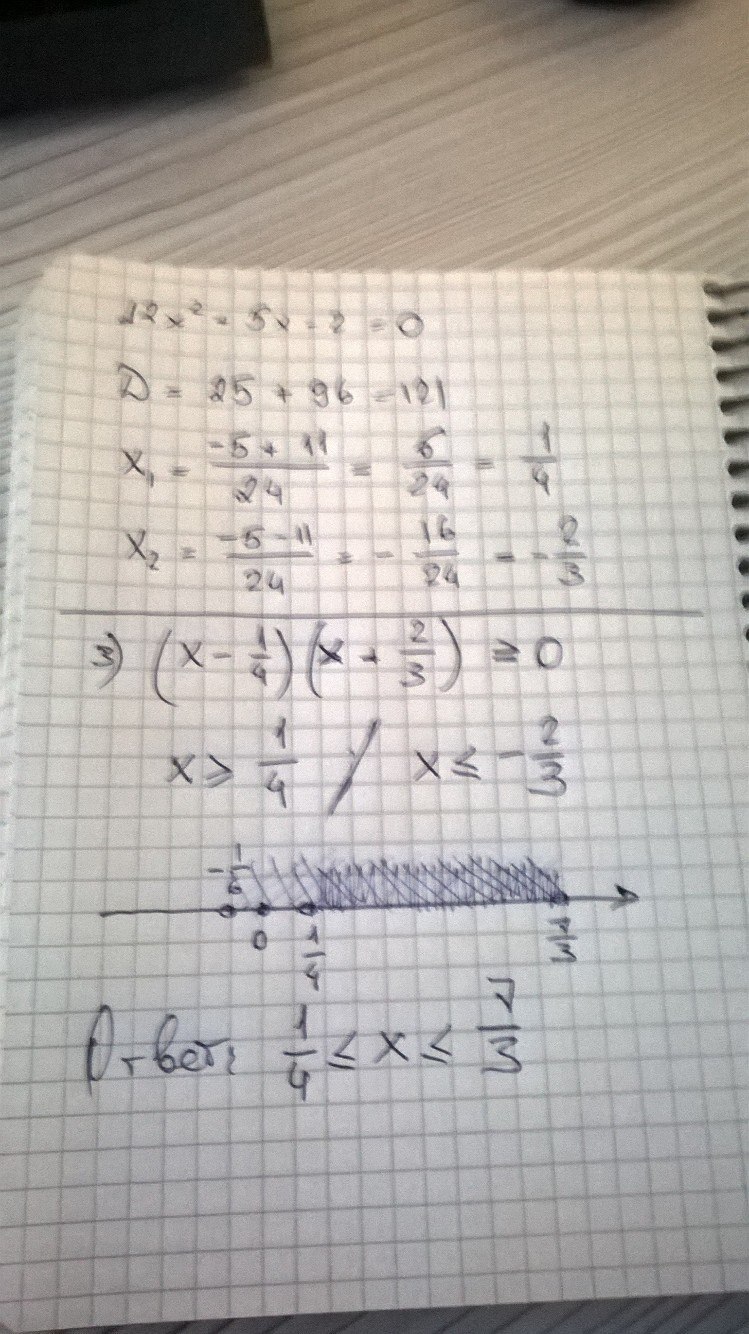 12x² + 5x - 2 = 0
D = 25 + 96 = 121
x₁ = (-5 + 11)/24 = 6/24 = 1/4
x₂ = (-5 - 11)/24 = -16/24 = -2/3
3) (x - 1/4)(x + 2/3) ≥ 0
x ≥ 1/4 / x ≤ -2/3
0 1/4 7/3
Ответ: 1/4 ≤ x ≤ 7/3